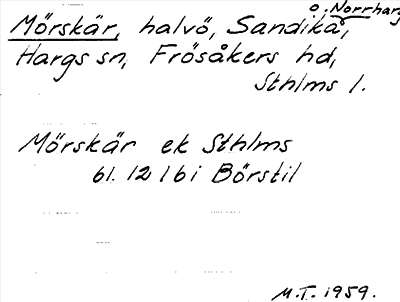 o. Norrharg
Mörskär, halvö, Sandika,
Hargs sn, Frösåkers hd,
Sthlms l.
Mörskär ek Sthlms
61. 12 l 6 i Börstil
M.T. 1959.